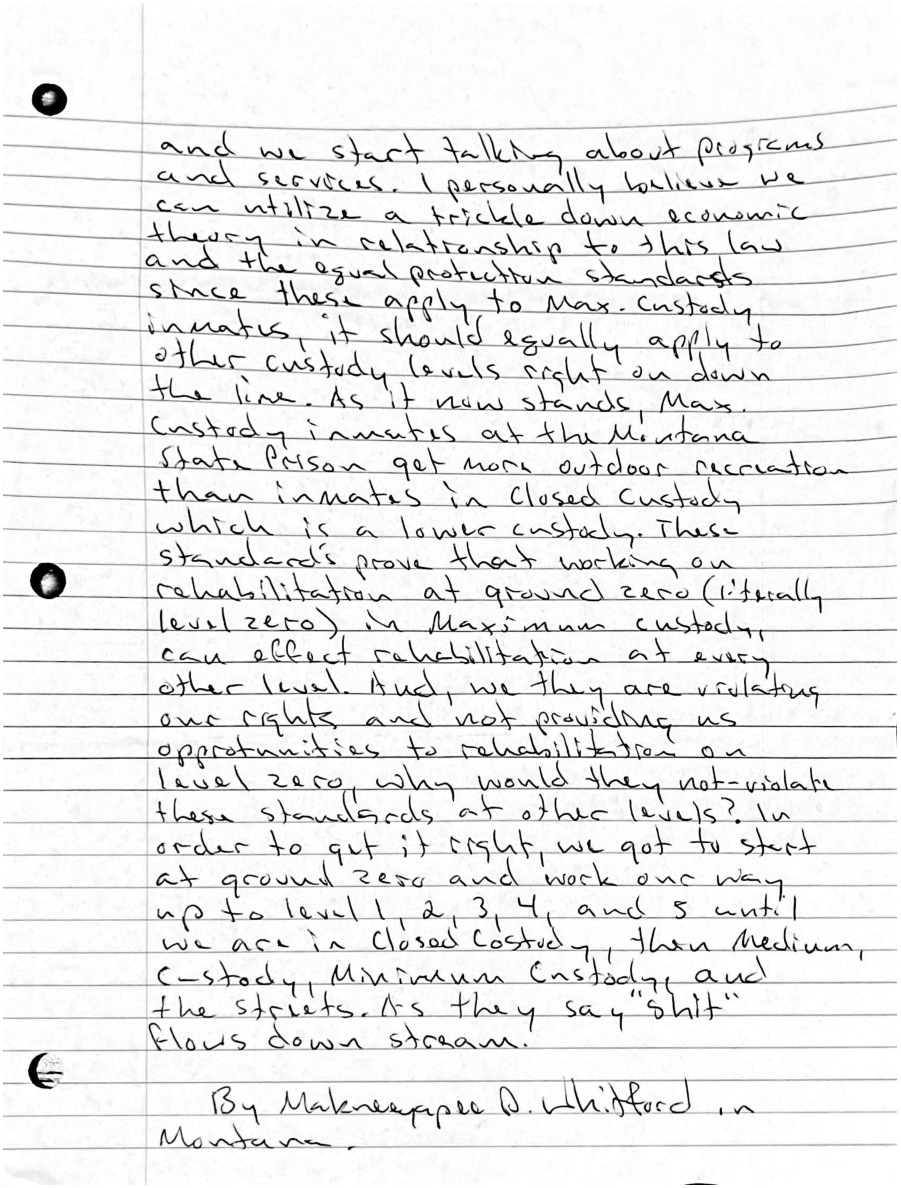 and we start talking about programs
and services. I personally believe we
can utilize a trickle down economic
theory in relationship to this law
and the equal protection standards
since these apply to Max. Custody
inmates, it should equally apply to
other custody levels right on down
the line. As it now stands, Max.
Custody inmates at the Montana
State Prison get more outdoor recreation
than inmates in Closed Custody
which is a lower custody. These
standards prove that working on
rehabilitation at ground zero (literally
level zero) in Maximum custody,
can effect rehabilitation at every
other level. And, we they are violating
our rights and not providing us
opprotunities to rehabilitation on
level zero, why would they not-violate
these standards at other levels? In
order to get it right, we got to start
at ground zero and work our way
up to level 1, 2, 3, 4, and 5 until
we are in Closed Costudy, then Medium,
Custody, Minimum Custody, and
the streets. As they say "shit"
flows down stream.
By Makneeyapee D. Whitford in
Montana.